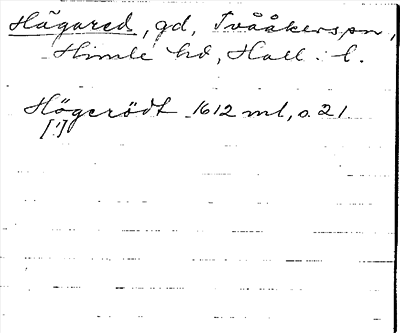 Hågared, gd, Tvååkers sn,
Himle hd, Hall. l.
Högerödt 1612 ml, s. 21.
[!]